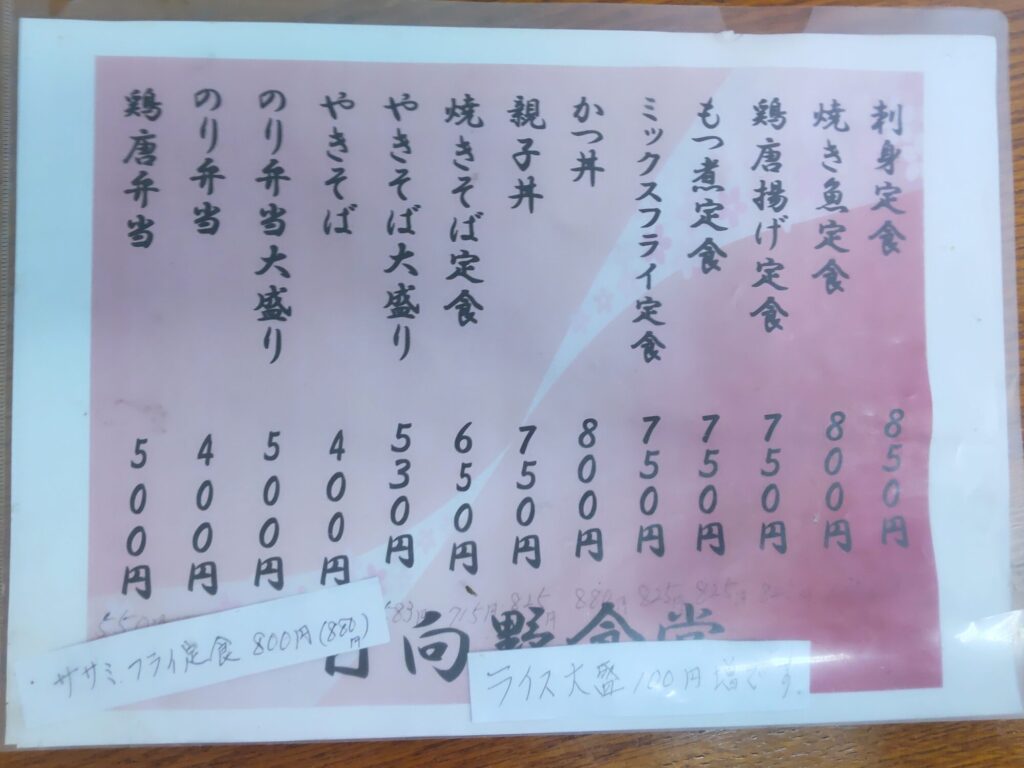 刺身定食 850円
焼き魚定食 800円
鶏唐揚げ定食 750円
もつ煮定食 750円
ミックスフライ定食 750円
かつ丼 800円
親子丼 750円
焼きそば定食 650円
やきそば大盛り 530円
やきそば 400円
のり弁当大盛り 500円
のり弁当 400円
鶏唐弁当 500円
825 825円 880円 825円 715円 583円 550円
向野食堂
ササミフライ定食 800円(880円)
ライス大盛100円増です。